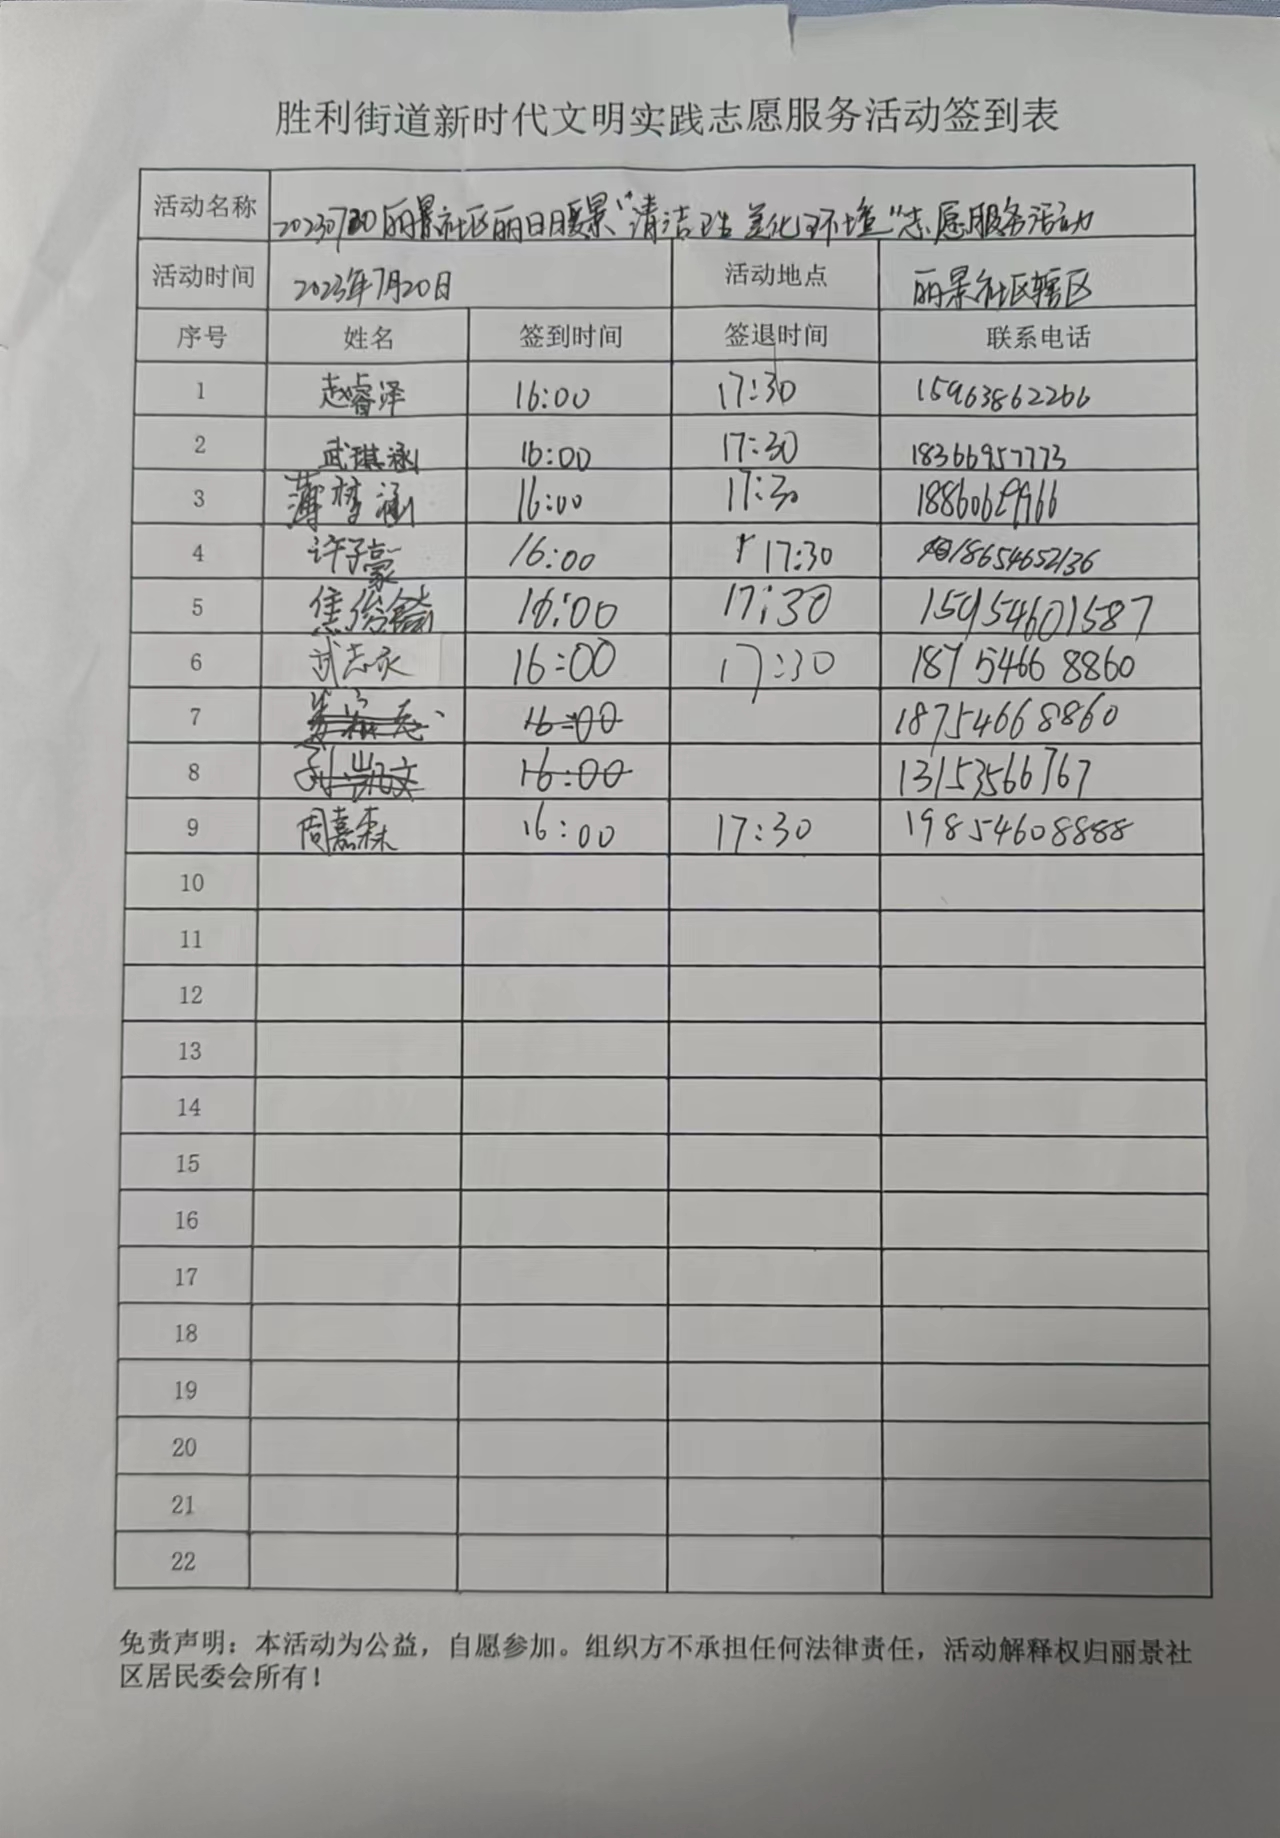 胜利街道新时代文明实践志愿服务活动签到表
活动名称 20230720丽景社区丽日暖景“清洁卫生 美化环境”志愿服务活动
活动时间 2023年7月20日 活动地点 丽景社区辖区
序号 姓名 签到时间 签退时间 联系电话
1 赵睿泽 16:00 17:30 15963862266
2 武琪涵 16:00 17:30 18366957773
3 薄梦涵 16:00 17:30 18860629966
4 许子豪 16:00 17:30 18654652136
5 16:00 17:30 15954601587
6 16:00 17:30 18754668860
7 16:00 18754668860
8 刘凯文 16:00 13153566767
9 周嘉森 16:00 17:30 19854608888
10
11
12
13
14
15
16
17
18
19
20
21
22
免责声明：本活动为公益，自愿参加。组织方不承担任何法律责任，活动解释权归丽景社
区居民委会所有！